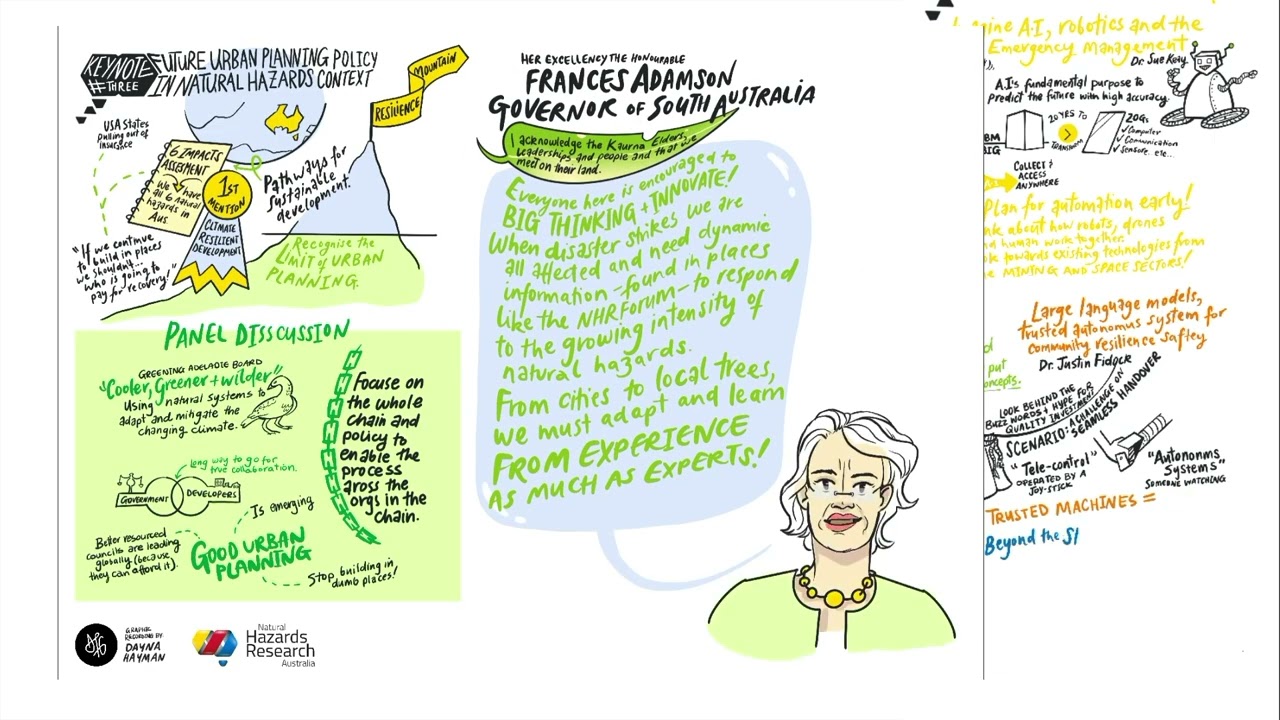 KEYNOTE
#THREE
FUTURE URBAN PLANNING POLICY
IN NATURAL HAZARDS CONTEXT
MOUNTAIN
RESILIENCE
USA States
pulling out of
insurance
6 IMPACTS
ASSESSMENT
We have
all 6 natural
hazards in
Aus.
1ST
MENTION
CLIMATE
RESILIENT
DEVELOPMENT
Pathways for
sustainable
development.
"If we continue
to build in places
we shouldn't...
who is going to
pay for recovery!"
Recognise the
limit of URBAN
PLANNING.
PANEL DISSCUSSION
GREENING ADELAIDE BOARD
"Cooler, Greener + wilder"
Using natural systems to
adapt and mitigate the
changing climate.
Long way to go for
true collaboration.
GOVERNMENT
DEVELOPERS
Is emerging
Better resourced
councils are leading
globally (because
they can afford it).
GOOD URBAN
PLANNING
Stop building in
dumb places!
Focus on
the whole
chain and
policy to
enable the
process
aross the
orgs in the
chain.
GRAPHIC
RECORDING BY:
DAYNA
HAYMAN
Natural
Hazards
Research
Australia
HER EXCELLENCY THE HONOURABLE
FRANCES ADAMSON
GOVERNOR OF SOUTH AUSTRALIA
I acknowledge the Kaurna Elders,
Leaderships and people and that we
meet on their land.
Everyone here is encouraged to
BIG THINKING + INNOVATE!
When disaster strikes we are
all affected and need dynamic
information - found in places
like the NHRForum - to respond
to the growing intensity of
natural hazards.
From cities to local trees,
we must adapt and learn
FROM EXPERIENCE
AS MUCH AS EXPERTS!
A.I, robotics and the
Emergency Management
Dr. Sue Keay
A.I's fundamental purpose to
predict the future with high accuracy.
20 YRS TO
TRANSFORM
20Gs
✓ Computer
✓ Comunication
✓ Sensors.. etc...
BM
BIG
COLLECT &
ACCESS
ANYWHERE
Plan for automation early!
nk about how robots, drones
d human work together.
ok towards existing technologies from
e MINING AND SPACE SECTORS!
Large language models,
trusted autonomus system for
community resilience saftey
Dr. Justin Fidock
d
put
oncepts.
LOOK BEHIND THE
BUZZ WORDS + HYPE FOR
QUALITY INVESTMENT
SCENARIO: A CHALLENGE ON
SEAMLESS HANDOVER
"Tele-control"
OPERATED BY A
JOY-STICK
"Autonomns
Systems"
SOMEONE WATCHING
TRUSTED MACHINES =
Beyond the SI